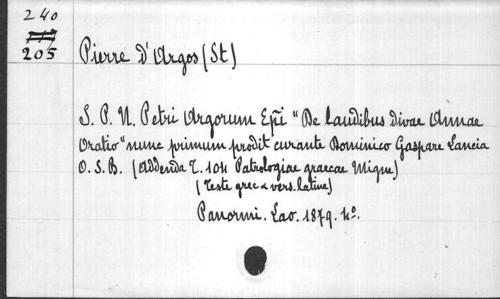 240
205
Pierre d'Argos (St)
S. P. N. Petri Argorum Epĩ "De laudibus divae Annae
Oratio" nunc primum prodit curante Dominico Gaspare Lancia
O. S. B. (Addenda T. 104 Patrologiae graecae Migne)
(Texte grec & vers. latine)
Panormi. Lao. 1879. 4º.